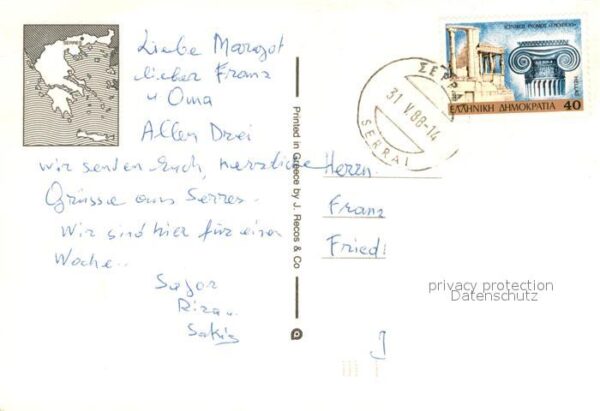 Liebe Margot
lieber Franz
u Oma
Allen Drei
wir senden Euch, herzliche
Grüsse aus Serres.
Wir sind hier für einen
Woche..
Sakis
Printed in Greece by J. Recos & Co
ΙΩΝΙΚΟΣ ΡΥΘΜΟΣ «ΕΡΕΧΘΕΙΟ»
HELLAS
ΕΛΛΗΝΙΚΗ ΔΗΜΟΚΡΑΤΙΑ 40
ΣΕΡΡΑΙ
31 V.88-14
SERRAI
Herrn.
Franz
Friedl
privacy protection
Datenschutz